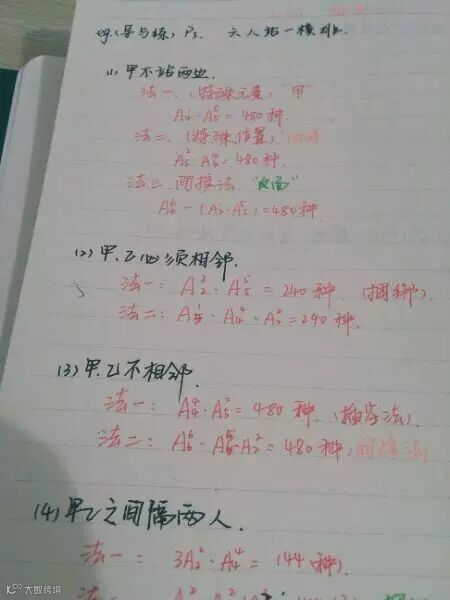 eg(导与练) P3. 六人站一横排.
(1) 甲不站两边.
法一、(特殊元素: "甲"
A¹₄·A⁵₅=480种.
法二、(特殊位置)
A²₅·A⁴₄=480种.
法三、间接法. "反面"
A⁶₆-(A¹₂·A⁵₅)=480种.
(2) 甲.乙必须相邻.
法一: A²₂·A⁵₅=240种. (捆绑).
法二: A¹₅·A⁴₄·A²₂=240种.
(3) 甲.乙不相邻.
法一: A⁴₄·A²₅=480种. (插空法).
法二: A⁶₆-A⁵₅·A²₂=480种. 间接法
(4) 甲乙之间隔两人.
法一: 3A²₂·A⁴₄=144种).
大数跨境